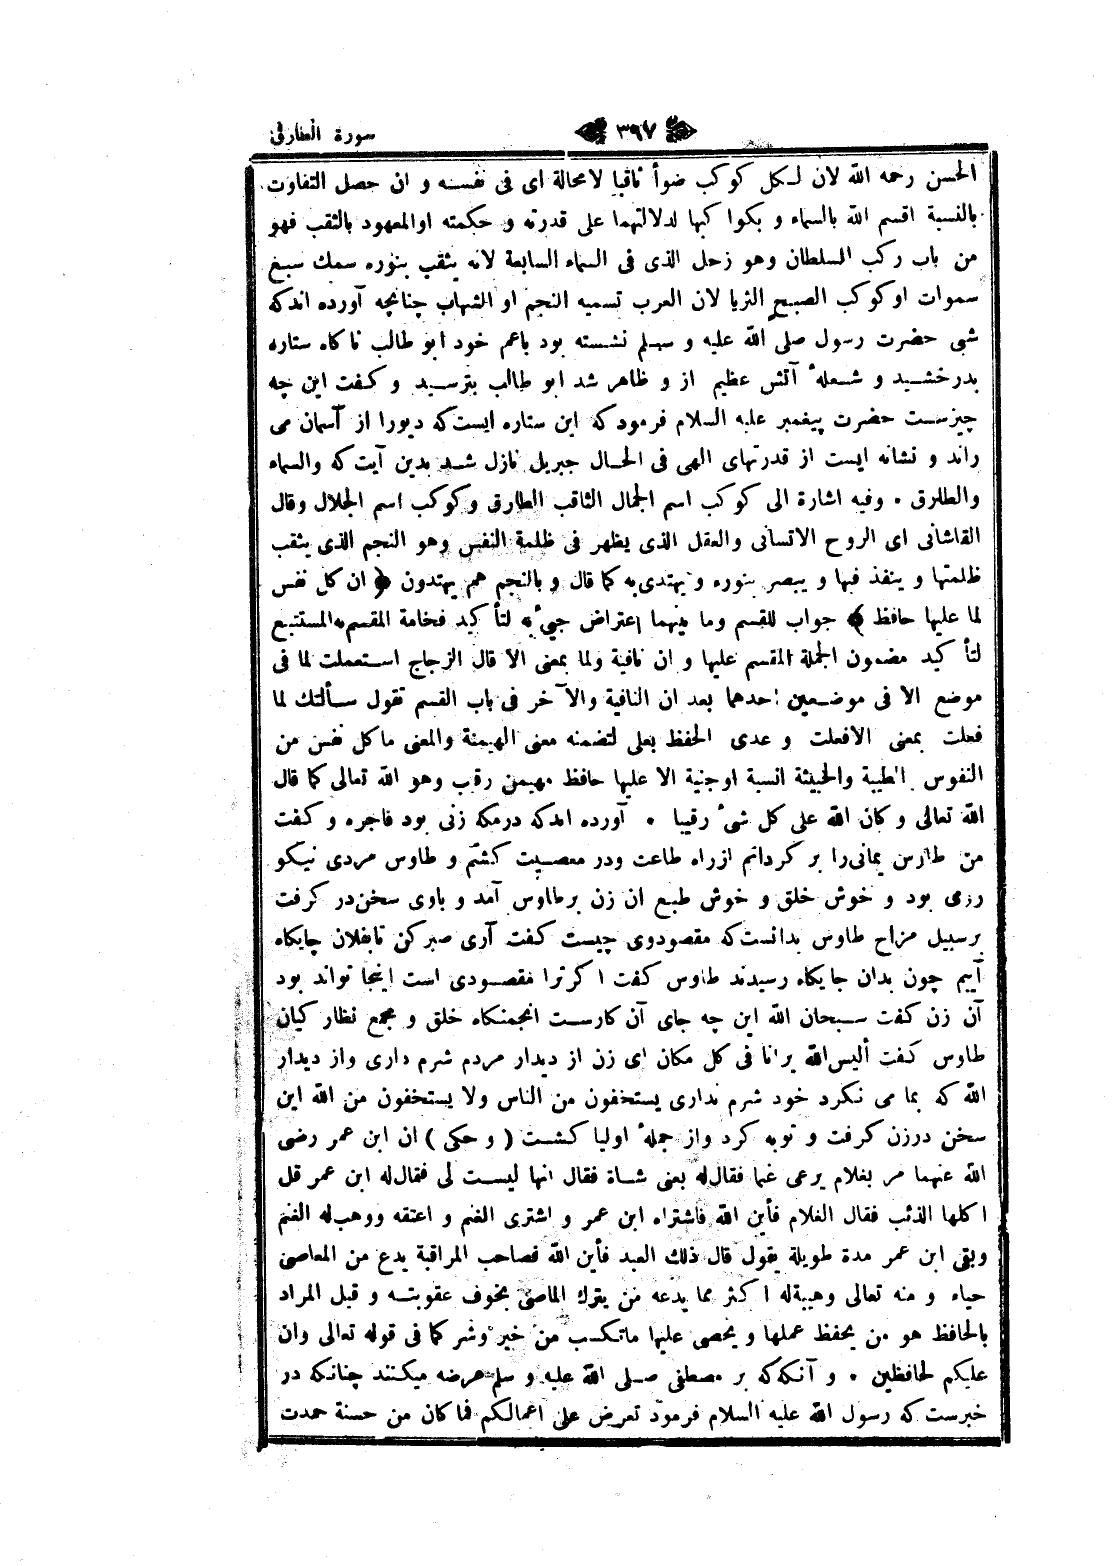 سورة الطارق ﴿ ٣٩٧ ﴾
الحسن رحمه الله لان لـكل كوكب ضوأ ثاقبا لامحالة اى فى نفسـه و ان حصل التفاوت
بالنسبة اقسم الله بالسماء و بكوا كبها لدلالتهما على قدرته و حكمته اوالمعهود بالثقب فهو
من باب ركب السلطان وهو زحل الذى فى السماء السابعة لانه يثقب بنوره سمك سبع
سموات اوكوكب الصبح الثريا لان العرب تسميه النجم او الشهاب چنانچه آورده اندكه
شبى حضرت رسول صلى الله عليه و سـلم نشسته بود باعم خود ابو طالب ناكاه ستاره
بدرخشـيد و شـعلهٔ آتش عظيم از و ظاهر شد ابو طالب بترسـيد و كـفت اين چه
چيزسـت حضرت پيغمبر عليه السلام فرمود كه اين ستاره ايست كه ديورا از آسمان مى
راند و نشانه ايست از قدرتهاى الهى فى الحـال جبريل نازل شـد بدين آيت كه والسماء
والطارق ٠ وفيه اشارة الى كوكب اسم الجمال الثاقب الطارق وكوكب اسم الجلال وقال
القاشانى اى الروح الانسانى والعقل الذى يظهر فى ظلمة النفس وهو النجم الذى يثقب
ظلمتها و ينفذ فيها و يبصر بنوره و يهتدى به كما قال و بالنجم هم يهتدون ﴿ ان كل نفس
لما عليها حافظ ﴾ جواب للقسم وما بينهما اعتراض جيئ به لتأ كيد فخامة المقسم به المستتبع
لتأ كيد مضمون الجملة المقسم عليها و ان نافية ولما بمعنى الا قال الزجاج اسـتعملت لما فى
موضع الا فى موضـعين احدهما بعد ان النافية والآخر فى باب القسم تقول سـألتك لما
فعلت بمعنى الافعلت و عدى الحفظ بعلى لتضمنه معنى الهيمنة والمعنى ماكل نفس من
النفوس الطيبة والخبيثة انسية اوجنية الا عليها حافظ مهيمن رقيب وهو الله تعالى كما قال
الله تعالى و كان الله على كل شىٔ رقيبا ٠ آورده اندكه درمكه زنى بود فاجره و كفت
من طاوس يمانى را بر كردانم ازراه طاعت ودر معصيت كشم و طاوس مردى نيكو
روى بود و خوش خلق و خوش طبع ان زن برطاوس آمد و باوى سخن در كرفت
برسبيل مزاح طاوس بدانست كه مقصودوى چيست كفت آرى صبركن تابفلان جايكاه
آييم چون بدان جايكاه رسيدند طاوس كفت ا كرترا مقصـودى است اينجا تواند بود
آن زن كفت سـبحان الله اين چه جاى آن كارست انجمنكاه خلق و مجمع نظار كيان
طاوس كفت أليس الله يرانا فى كل مكان اى زن از ديدار مردم شرم دارى واز ديدار
الله كه بما مى نكرد خود شرم ندارى يستخفون من الناس ولا يستخفون من الله اين
سخن درزن كرفت و توبه كرد واز جملهٔ اوليا كشت ( و حكى ) ان ابن عمر رضى
الله عنهما مر بغلام يرعى غنما فقال له بعنى شـاة فقال انها ليست لى فقال له ابن عمر قل
اكلها الذئب فقال الغلام فأين الله فاشتراه ابن عمر و اشترى الغنم و اعتقه ووهب له الغنم
وبقى ابن عمر مدة طويلة يقول قال ذلك العبد فأين الله فصاحب المراقبة يدع من المعاصى
حياء و منه تعالى وهيبة له ا كثر مما يدعه من يترك المعاصى بخوف عقوبتـه و قيل المراد
بالحافظ هو من يحفظ عملها و يحصى عليها ماتكسب من خير وشر كما فى قوله تعالى وان
عليكم لحافظين ٠ و آنكه كه بر مصطفى صـلى الله عليه و سلم عرضه ميكـنند چنانكه در
خبرست كه رسول الله عليه السلام فرمود تعرض على اعمالكم فما كان من حسنة حمدت